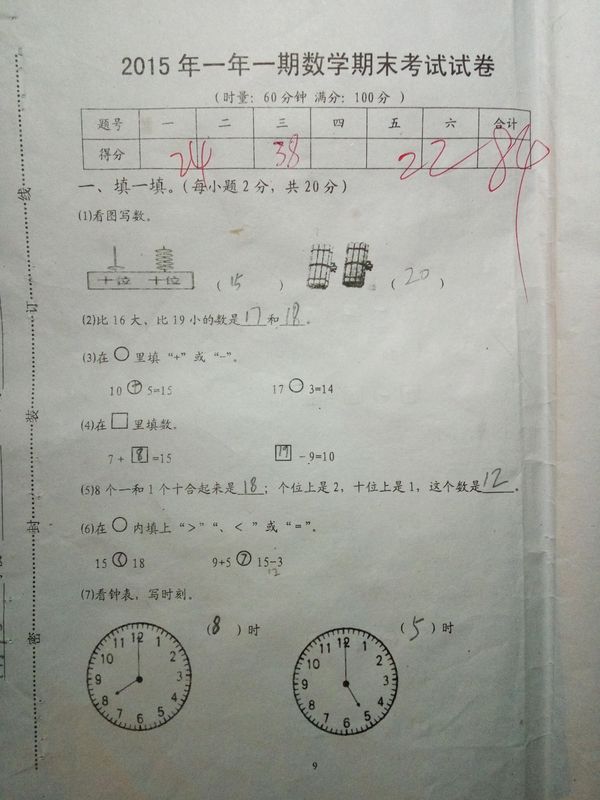 2015年一年一期数学期末考试试卷
（时量：60分钟 满分：100分）
题号 一 二 三 四 五 六 合计
得分 24 38 22 84
一、填一填。（每小题2分，共20分）
(1)看图写数。
十位 十位 （15） （20）
(2)比16大，比19小的数是17和18。
(3)在○里填“+”或“-”。
10 + 5=15 17 - 3=14
(4)在□里填数。
7 + 8 =15 19 - 9=10
(5)8个一和1个十合起来是18；个位上是2，十位上是1，这个数是12。
(6)在○内填上“>”“、< ”或“=”。
15 < 18 9+5 > 15-3
12
(7)看钟表，写时刻。
（8）时 （5）时
12 1 2 3 4 5 6 7 8 9 10 11
12 1 2 3 4 5 6 7 8 9 10 11
9
密 封 装 订 线